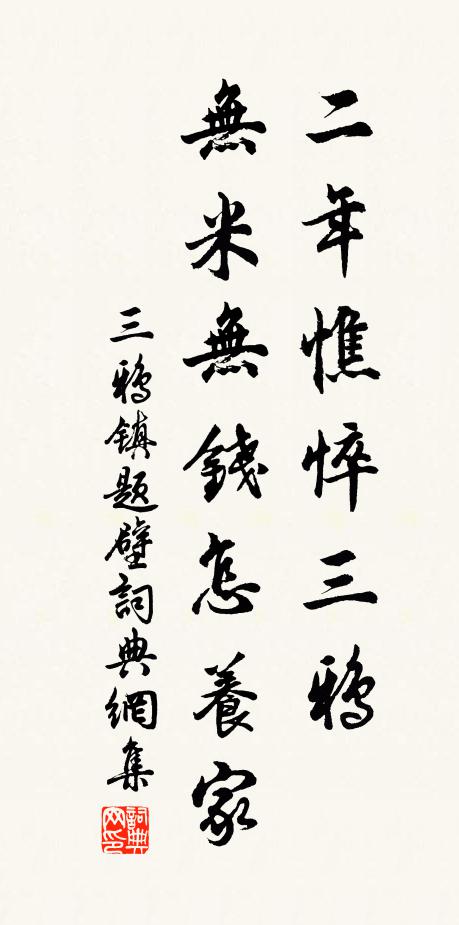 二年憔悴三鴉
無米無錢怎養家
三鴉镇題壁詞典網集
詞典
网印